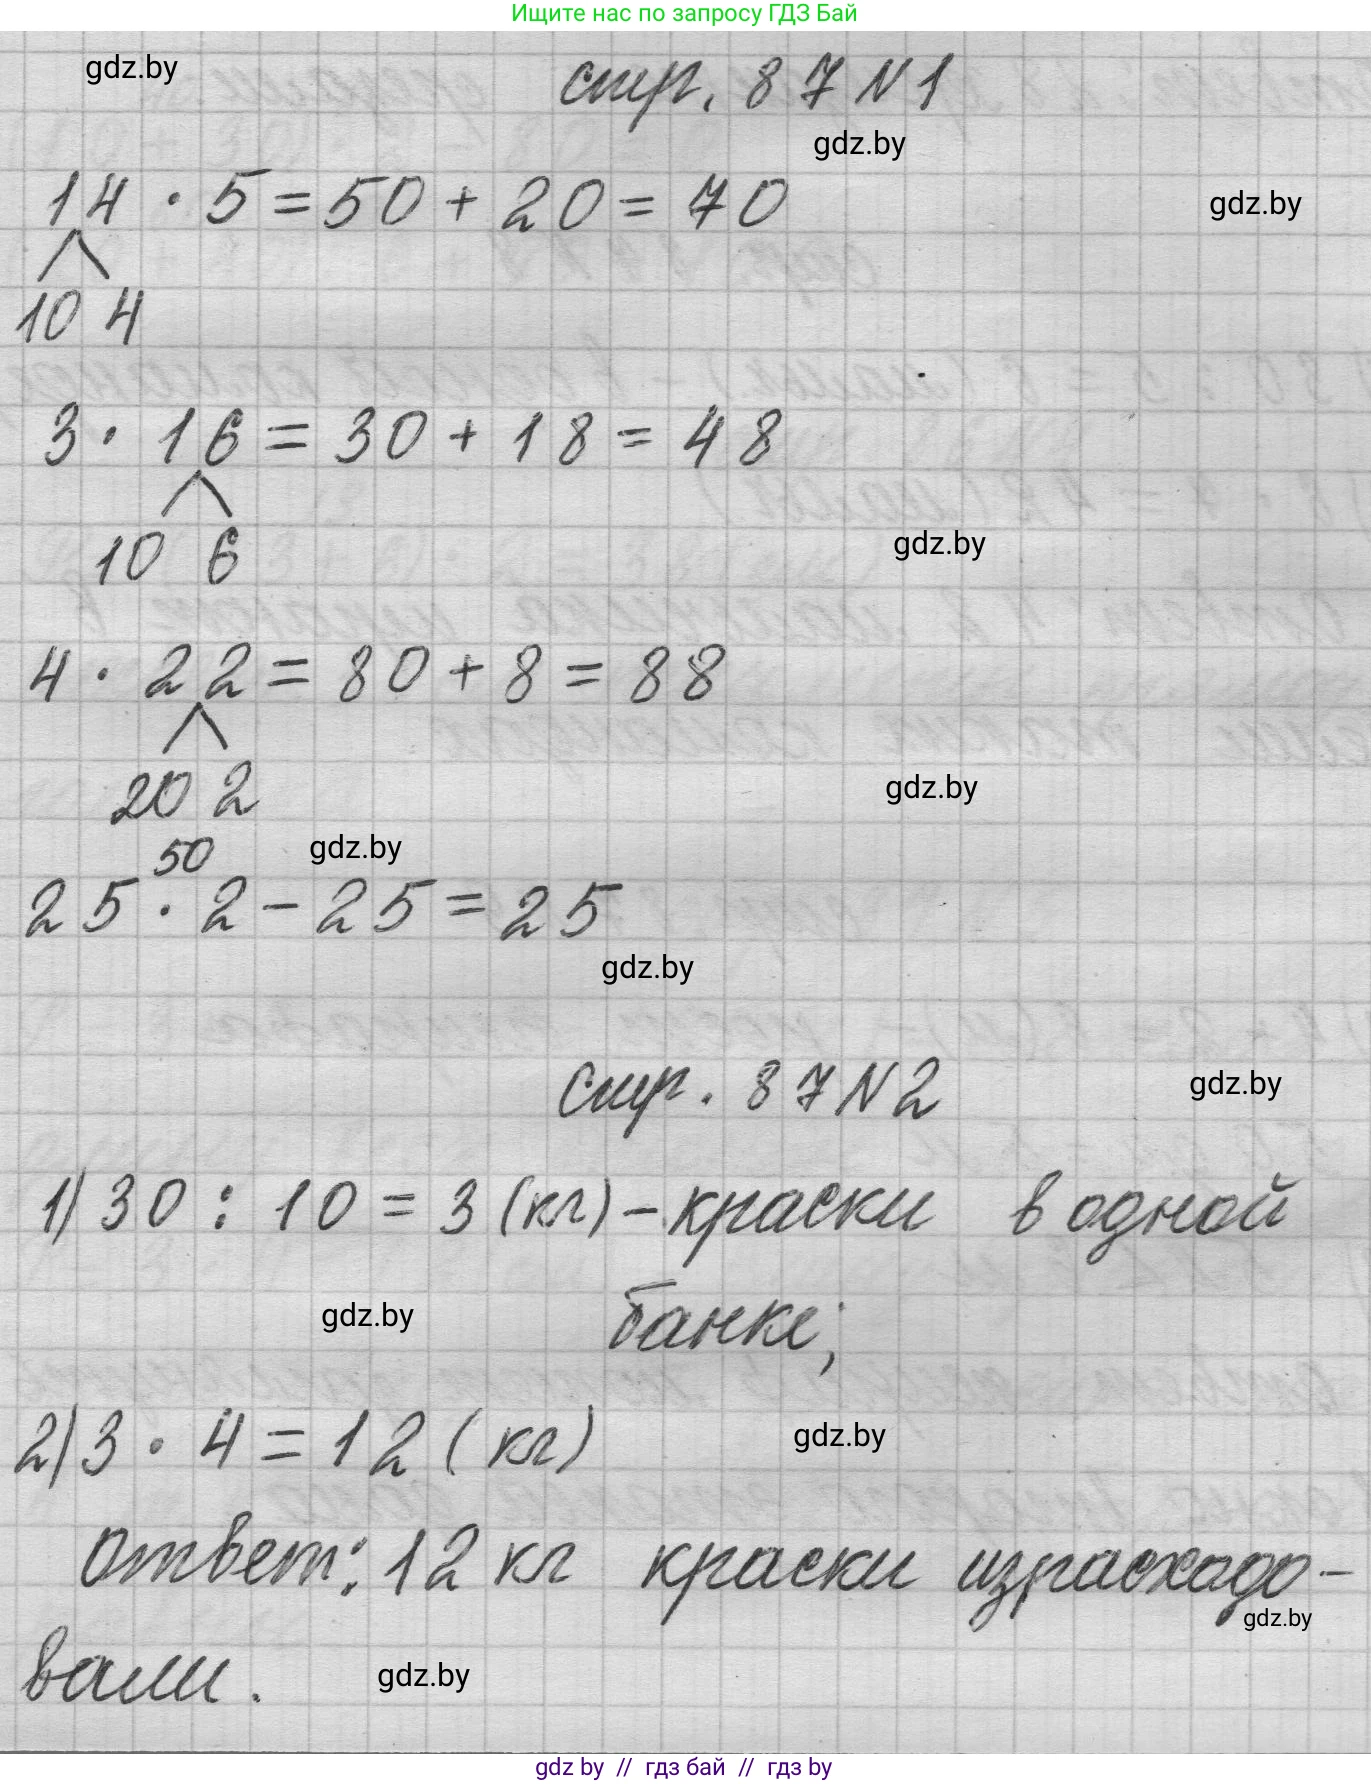 Ищите нас по запросу ГДЗ Бай
gdz.by
стр. 87 N 1
gdz.by
14 · 5 = 50 + 20 = 70
gdz.by
10 4
3 · 16 = 30 + 18 = 48
10 6
gdz.by
4 · 22 = 80 + 8 = 88
20 2
gdz.by
50
gdz.by
25 · 2 - 25 = 25
gdz.by
стр. 87 N 2
gdz.by
1) 30 : 10 = 3 (кг) - краски в одной
банке;
gdz.by
2) 3 · 4 = 12 (кг)
gdz.by
Ответ: 12 кг краски израсходо-
gdz.by
вали.
gdz.by
gdz by // гдз бай // гдз by